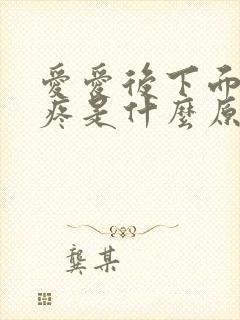 愛愛後下面
疼是什麼原
龔某